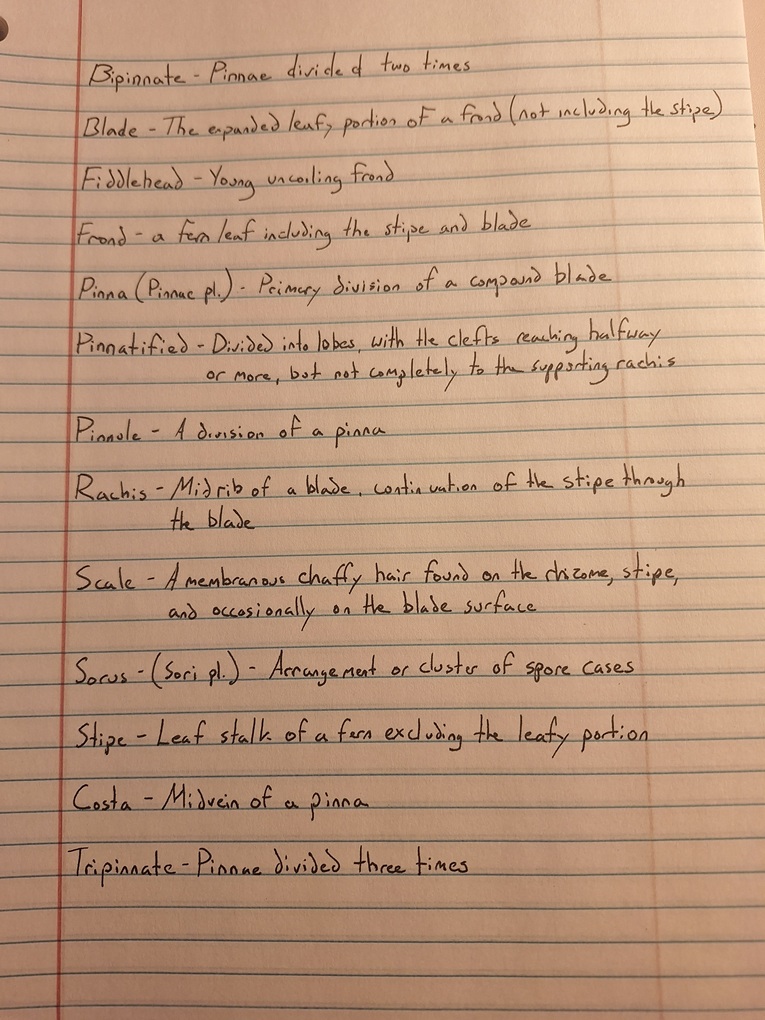 Bipinnate - Pinnae divided two times
Blade - The expanded leafy portion of a frond (not including the stipe)
Fiddlehead - Young uncoiling frond
Frond - a fern leaf including the stipe and blade
Pinna (Pinnae pl.) - Primary division of a compound blade
Pinnatified - Divided into lobes, with the clefts reaching halfway
or more, but not completely to the supporting rachis
Pinnule - A division of a pinna
Rachis - Midrib of a blade, continuation of the stipe through
the blade
Scale - A membranous chaffy hair found on the rhizome, stipe,
and occasionally on the blade surface
Sorus - (Sori pl.) - Arrangement or cluster of spore cases
Stipe - Leaf stalk of a fern excluding the leafy portion
Costa - Midvein of a pinna
Tripinnate - Pinnae divided three times